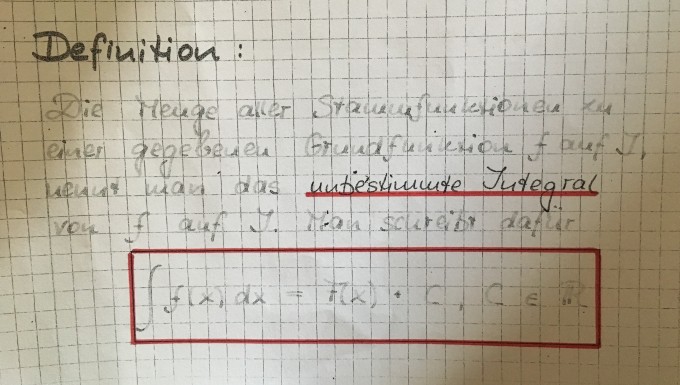 Definition:
Die Menge aller Stammfunktionen zu
einer gegebenen Grundfunktion f auf I,
nennt man das unbestimmte Integral
von f auf I. Man schreibt dafür
∫ f(x) dx = F(x) + C, C ∈ ℝ